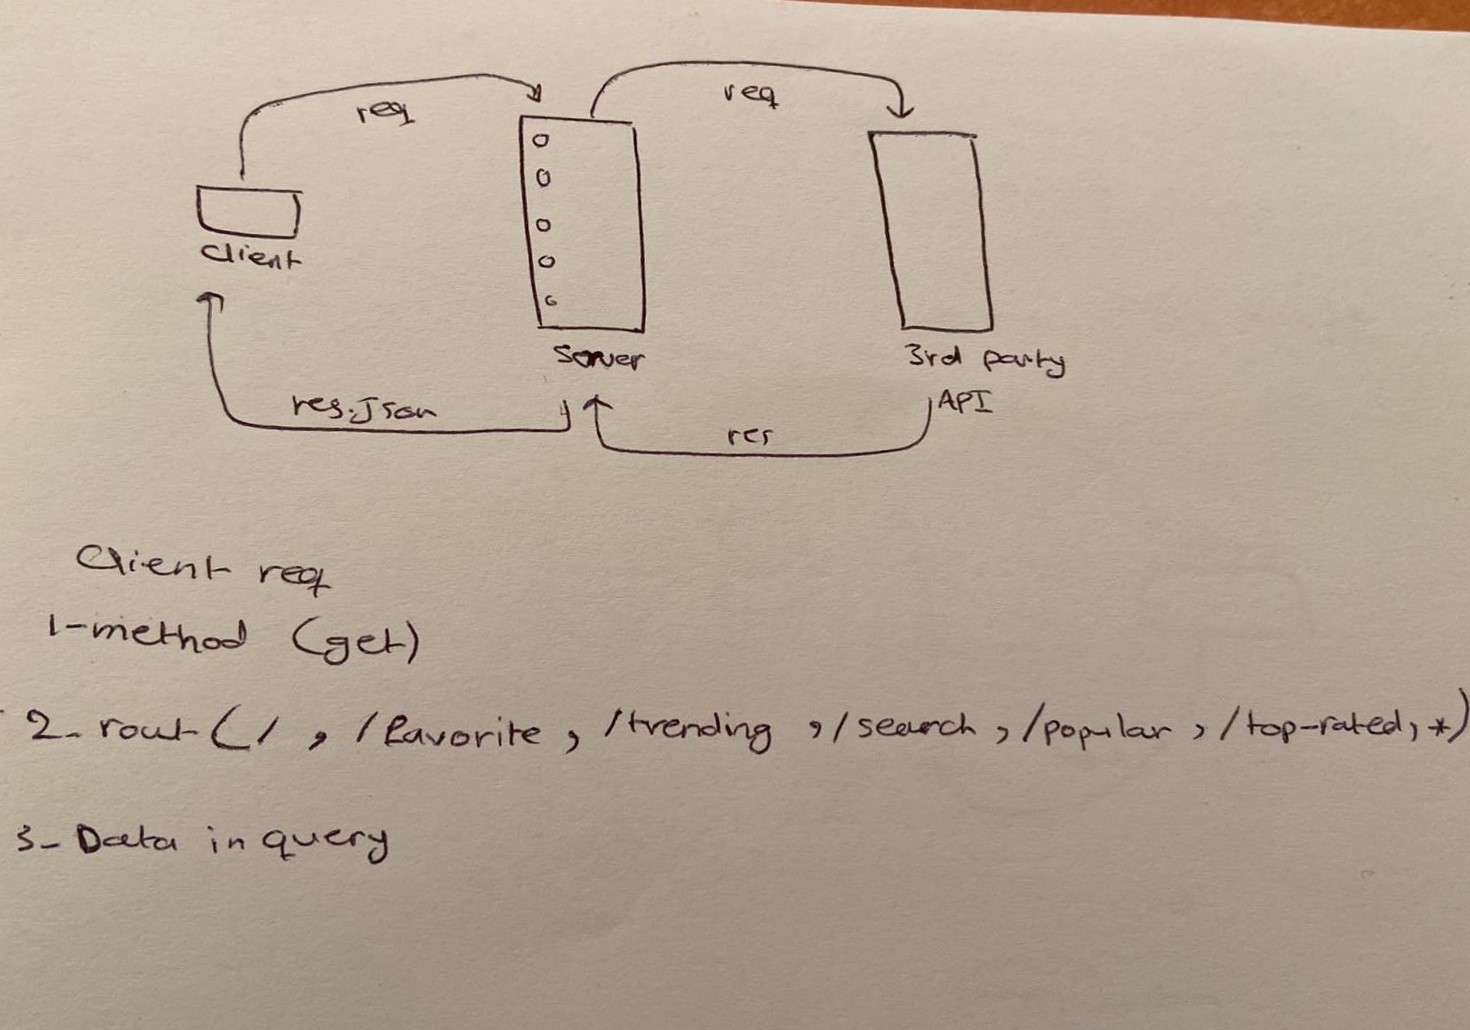 req
req
Client
Server
3rd party
API
res.Json
res
Client req
1-method (get)
2- rout (/ , /favorite , /trending , /search , /popular , /top-rated, *)
3- Data in query